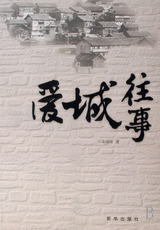 爱城
往事
著
新华出版社